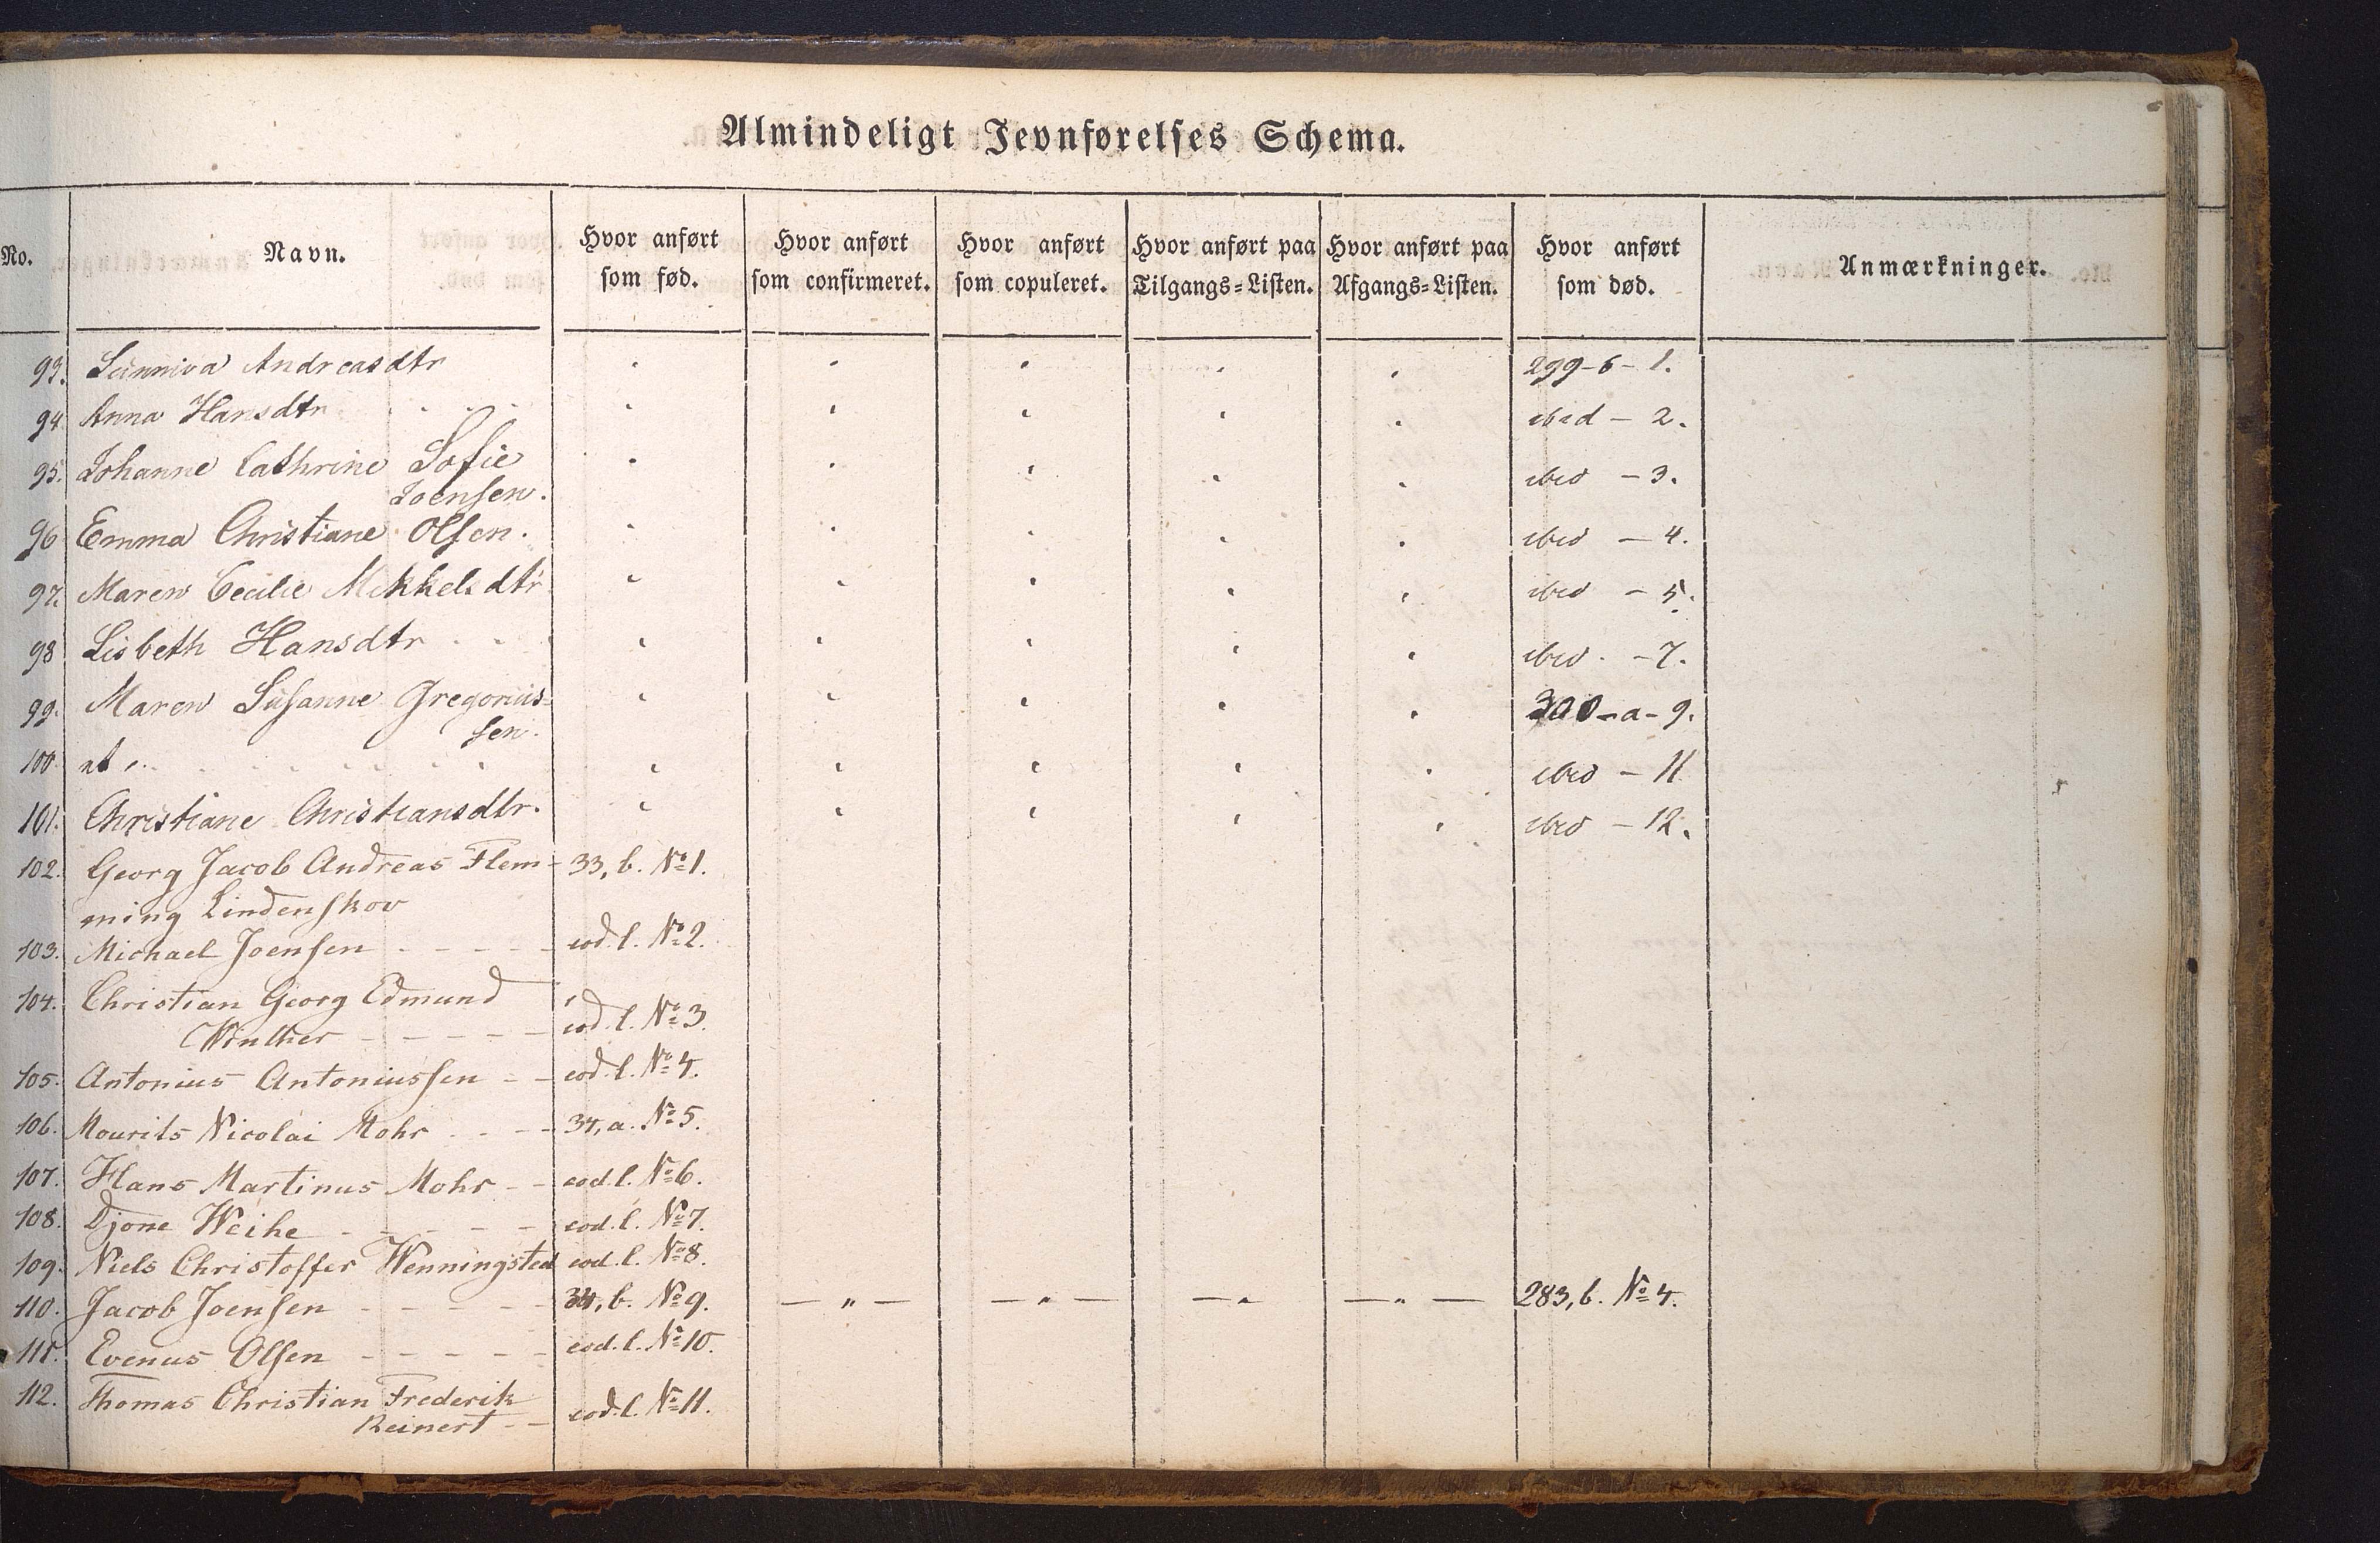 Almindeligt Jevnførelses Schema.
No. Navn. Hvor anført som fød. Hvor anført som confirmeret. Hvor anført som copuleret. Hvor anført paa Tilgangs-Listen. Hvor anført paa Afgangs-Listen. Hvor anført som død. Anmærkninger.
93. Sunniva Andreasdtr 299-b-1.
94. Anna Hansdtr ibid - 2.
95. Johanne Cathrine Sofie ibid - 3.
Joensen.
96 Emma Christiane Olsen. ibid - 4.
97. Maren Cecilie Mikkelsdtr ibid - 5.
98 Lisbeth Hansdtr ibid. - 7.
99. Maren Susanne Gregorius- 300-a-9.
sen.
100. ibid - 11
101. Christiane Christiansdtr. ibid - 12.
102. Georg Jacob Andreas Flem- 33, b. No 1.
ming Lindenskov
103. Michael Joensen - - - - - eod. l. No 2.
104. Christian Georg Edmund
Winther - - - - - eod. l. No 3.
105. Antonius Antoniussen - - eod. l. No 4.
106. Mourits Nicolai Mohr - - - 34, a. No 5.
107. Hans Martinus Mohr - - eod. l. No 6.
108. Djone Weihe - - - - - eod. l. No 7.
109. Niels Christoffer Wenningsted eod. l. No 8.
110. Jacob Joensen - - - - - 34, b. No 9. — „ — — „ — — „ — „ — 283, b. No 4.
111. Evenus Olsen - - - - - eod. l. No 10.
112. Thomas Christian Frederik
Reinert - - eod. l. No 11.